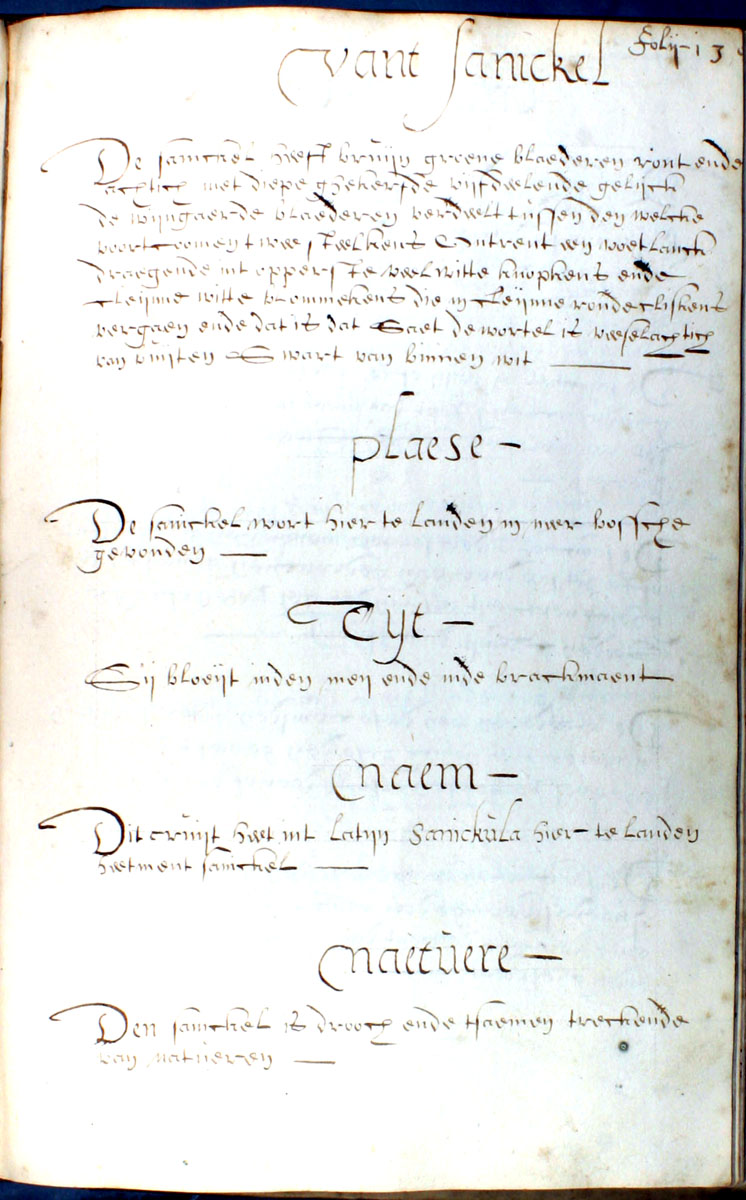 folij 13
Vant Sanickel
De sanickel heeft bruijn groene blaederen ront ende
achtich met diepe ghekerfde vijfdeelende gelijck
de wijngaerde blaederen verdeelt tussen den welcke
voortcoomen twee steelkens Ontrent een voet lanck
draegende int opperste veel witte knopkens ende
cleijnne witte blommekens die in cleijnne ronde cliskens
vergaen ende dat is dat Saet de wortel is veeselachtich
van buijten Swart van binnen wit
plaese
De sanickel wort hier te landen in meer bossche
gevonden
Tijt
Sij bloeijt inden meij ende inde brackmaent
naem
Dit cruijt heet int latijn Sanickula hier te landen
heetment sanickel
naetuere
Den sanickel is drooch ende tsaemen treckende
van natueren